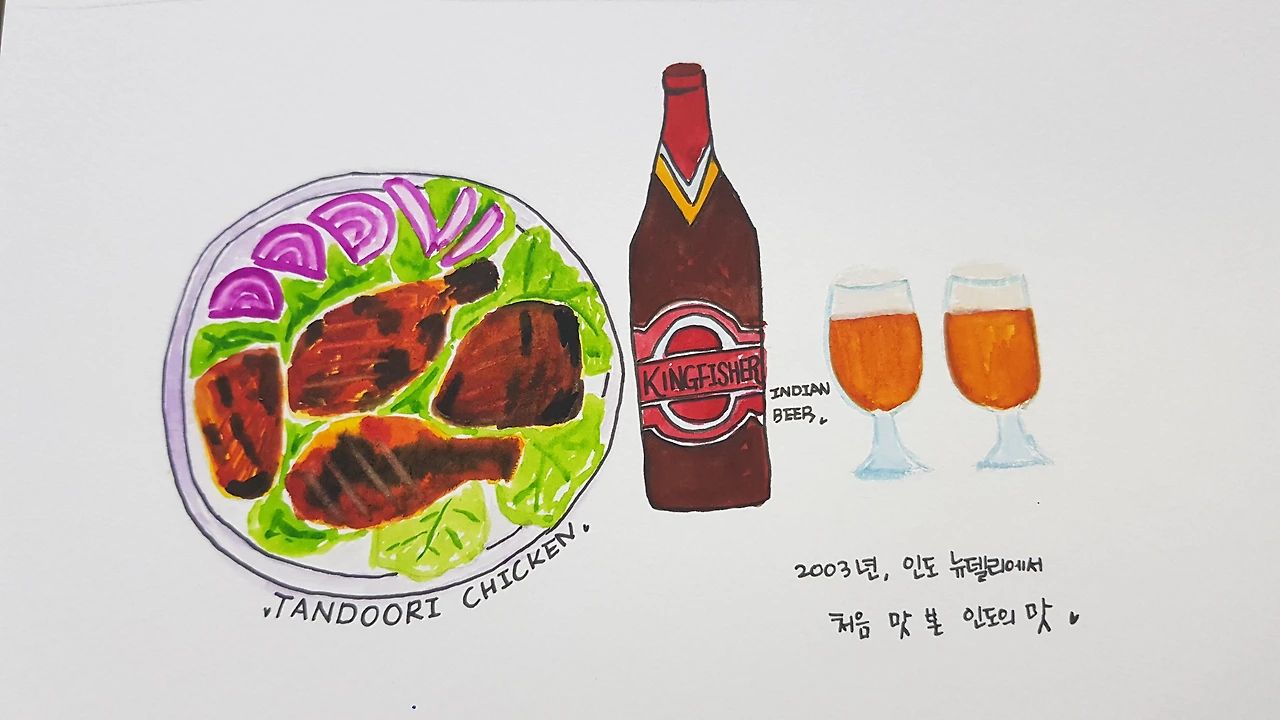 TANDOORI CHICKEN
KINGFISHER
INDIAN
BEER
2003년, 인도 뉴델리에서
처음 맛 본 인도의 맛